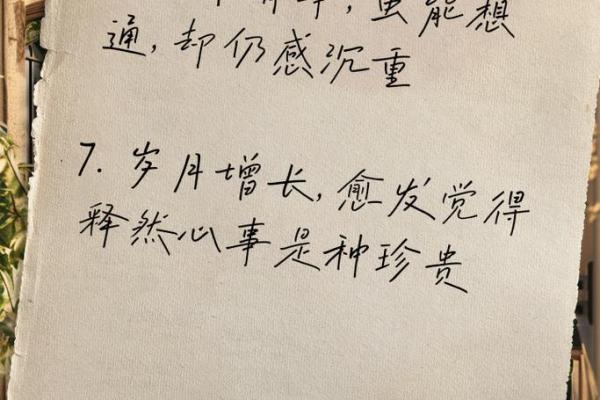 虽能想
通，却仍感沉重
7. 岁月增长，愈发觉得
释然心事是种珍贵